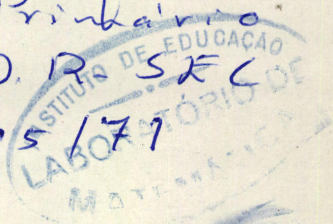 D. R. SEC
5/71
INSTITUTO DE EDUCAÇÃO
LABORATÓRIO DE
MATEMÁTICA